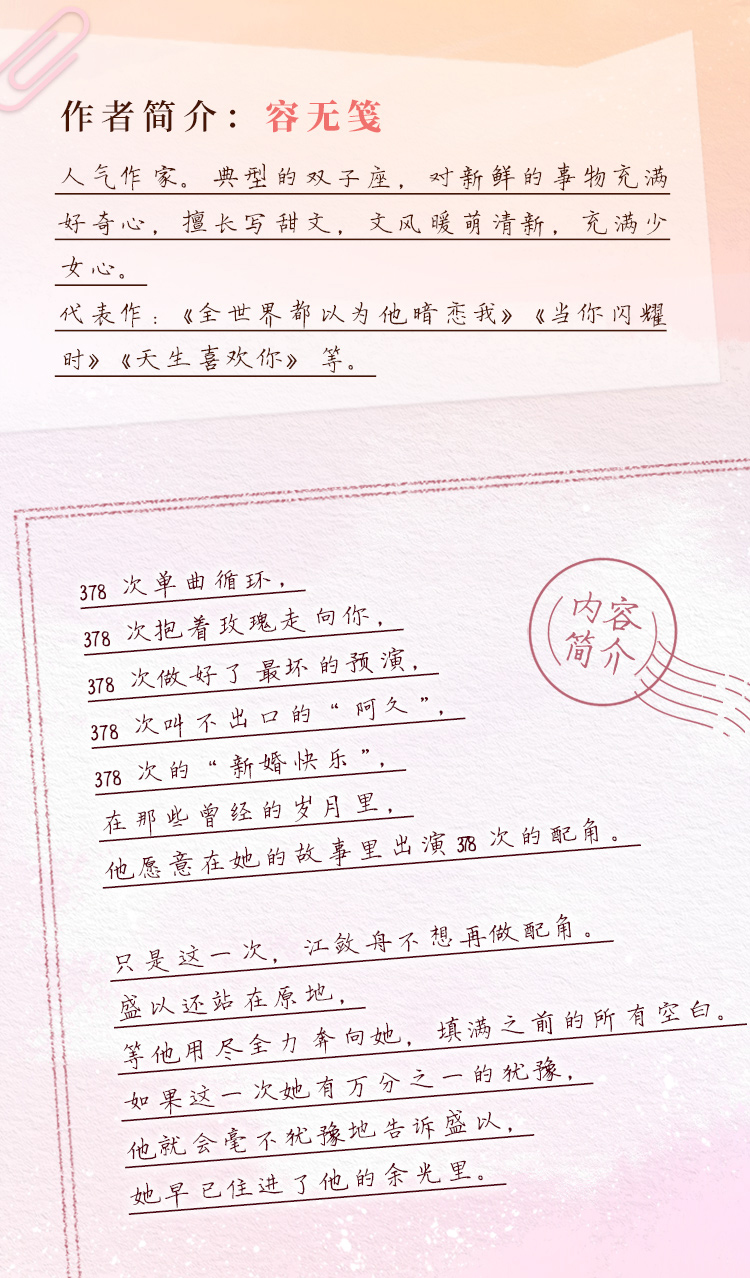 作者简介：容无笺
人气作家。典型的双子座，对新鲜的事物充满
好奇心，擅长写甜文，文风暖萌清新，充满少
女心。
代表作：《全世界都以为他暗恋我》《当你闪耀
时》《天生喜欢你》等。
内容
简介
378 次单曲循环，
378 次抱着玫瑰走向你，
378 次做好了最坏的预演，
378 次叫不出口的“阿久”，
378 次的“新婚快乐”，
在那些曾经的岁月里，
他愿意在她的故事里出演 378 次的配角。
只是这一次，江敛舟不想再做配角。
盛以还站在原地，
等他用尽全力奔向她，填满之前的所有空白。
如果这一次她有万分之一的犹豫，
他就会毫不犹豫地告诉盛以，
她早已住进了他的余光里。